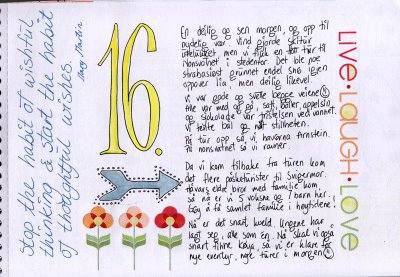 Stop the habit of wishful
thinking & start the habit
of thoughtful wishes.
Mary Martin
16.
En deilig og sen morgen, og opp til
nydelig vær. Vind gjorde skitur
men vi fikk en fin tur til
Nonsvatnet i stedenfor. Det ble noe
grunnet endel snø igjen
oppover lia, men deilig likevel
Vi var gode og svette begge veiene
Alle var med og på, saft, boller, appelsin
og sjokolade var fristelsen ved vannet.
Vi tente bål og nøt stillheten.
På tur opp så vi havørna
På nonsvatnet så vi ravner.
Da vi kom tilbake fra turen kom
det flere påsketurister til Svigermor.
eldre bror med familie kom
så nå er vi 5 voksne og 7 barn her.
å få samlet familie i høytidene!
Nå er det snart kveld. Ungene har
lagt seg, alle som en. Nå skal vi også
snart finne køya, så vi er klare for
nye eventyr, nye turer i morgen
LIVE • LAUGH • LOVE